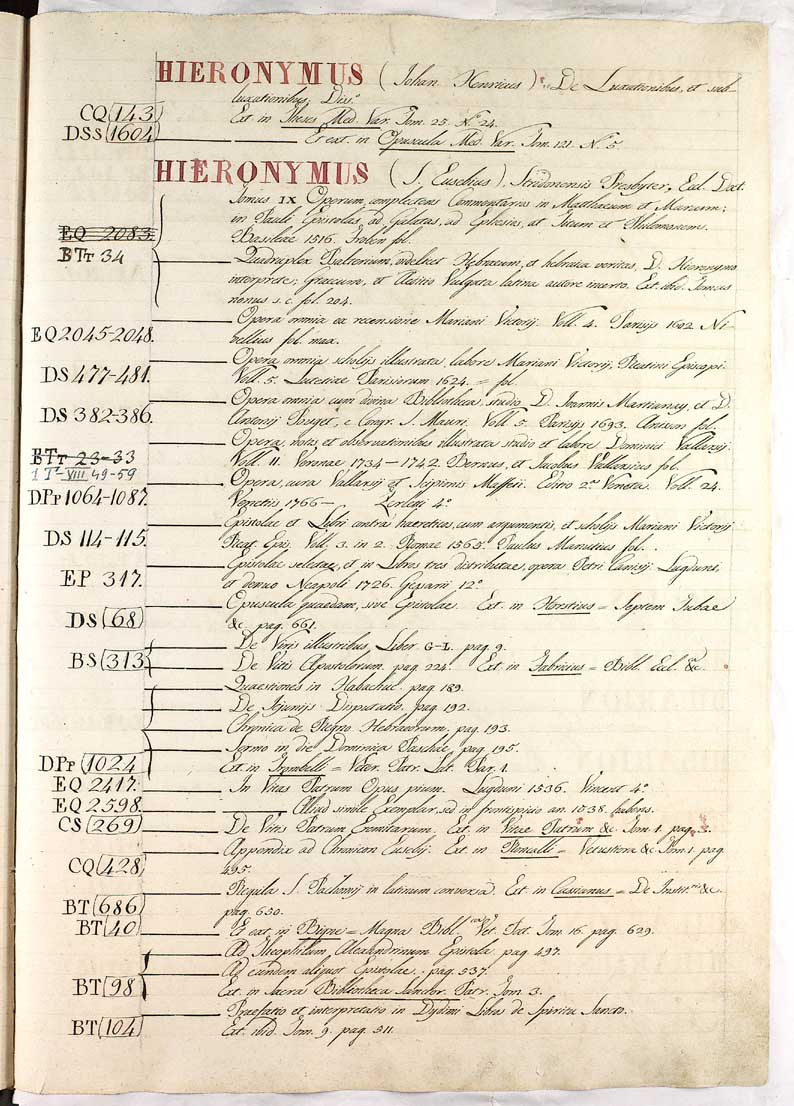 HIERONYMUS (Johan Henricus) De Luxationibus, et sub-
luxationibus, Diss.
CQ (143) Ext. in Theses Med. Var. Tom. 25. N.º 24.
DSS (1604) Et ext. in Opuscula Med. Var. Tom. 121. N.º 5.
HIERONYMUS (S. Eusebius) Stridonensis Presbyter, Eccl. Doct.
Tomus IX Operum complectens Commentarios in Matthaeum et Marcum;
in Pauli Epistolas ad Galatas, ad Ephesios, ad Titum et Philemonem.
EQ 2083. Basileae 1516. Froben fol.
BTt 34 Quadruplex Psalterium, videlicet Hebraeum, et hebraica veritas, D. Hieronymo
interprete; Graecum, et Aeditio Vulgata latina autore incerto. Ext. ibid. Tomus
nonus s. c. fol. 204.
Opera omnia ex recensione Mariani Victorij. Voll. 4. Parisijs 1602 Ni-
EQ 2045-2048. vellius fol. max.
Opera omnia scholijs illustrata, labore Mariani Victorij, Reatini Episcopi
DS 477-481. Voll. 5. Lutetiae Parisiorum 1624. = fol.
Opera omnia cum divina Bibliotheca, studio D. Joannis Martianay, et D.
DS 382-386. Antonij Pouget, e Congr. S. Mauri. Voll. 5. Parisijs 1693. Anisson fol.
Opera, notis et observationibus illustrata studio et labore Dominici Vallarsij.
BTt 23-33 Voll. 11. Veronae 1734-1742. Bernus, et Jacobus Vallarsius fol.
1 Tª VIII 49-59 Opera, cura Vallarsij et Scipionis Maffeii. Editio 2.ª Veneta. Voll. 24.
DPp 1064-1087. Venetiis 1766- Zerletti 4.º
Epistolae et Libri contra haereticos, cum argumentis, et scholijs Mariani Victorij
DS 114-115. Reat. Epis. Voll. 3. in 2. Romae 1565. Paulus Manutius fol.
Epistolae selectae, et in Libros tres distributae, opera Petri Canisij Lugduni,
EP 317. et denuo Neapoli 1726. 12.º
Opuscula quaedam, sive Epistolae. Ext. in Horstius = Septem Tubae
DS (68) &c. pag. 661.
De Viris illustribus, Liber G-L. pag. 9.
BS (313) De Vitis Apostolorum. pag. 224. Ext. in Fabricius = Bibl. Eccl. &c.
Quaestiones in Habachuc. pag. 189.
De Jejunijs Disputatio. pag. 192.
Chronica de Regno Hebraeorum. pag. 193.
Sermo in die Dominica Paschae, pag. 195.
DPp (1024) Ext. in Trombelli = Veter. Patr. Lat. Par. 1.
EQ 2417. In Vitas Patrum Opus pium. Lugduni 1536. Vincent 4.º
EQ 2598. Aliud simile Exemplar, sed in frontispicio an. 1038. habens.
CS (269) De Vitis Patrum Eremitarum. Ext. in Vitae Patrum &c. Tom. 1. pag. 3.
Appendix ad Chronicon Eusebij. Ext. in Roncalli = Vetustiora &c. Tom. 1. pag.
CQ (428) 495.
Regula S. Pachomij in latinum conversa. Ext. in Cassianus = De Instit. &c.
BT (686) pag. 650.
BT (40) Et ext. in Bigne = Magna Bibl. Vet. Pat. Tom. 16. pag. 629.
Ad Theophilum Alexandrinum Epistola. pag. 497.
Ad eundem aliquot Epistolae. pag. 537.
BT (98) Ext. in Sacra Bibliotheca Sanctor. Patr. Tom. 3.
Praefatio et interpretatio in Dydimi Libros de Spiritu Sancto.
BT (104) Ext. ibid. Tom. 9. pag. 311.